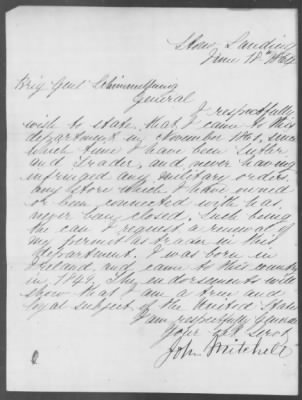 Stono Landing
June 18th 1864
Brig Genl Schimmelfennig
General
I respectfully
wish to state that I came to this
department in November 1861, since
which time I have been Sutler
and Trader, and never having
infringed any military orders.
Any store which I have owned
or been connected with has
never being closed. Such being
the case I request a renewal of
my permit as trader in this
department. I was born in
Ireland and came to this country
in 1847. My endorsements will
show that I am a true and
loyal subject of the United States
I am respectfully General
Your obt Servt
John Mitchell